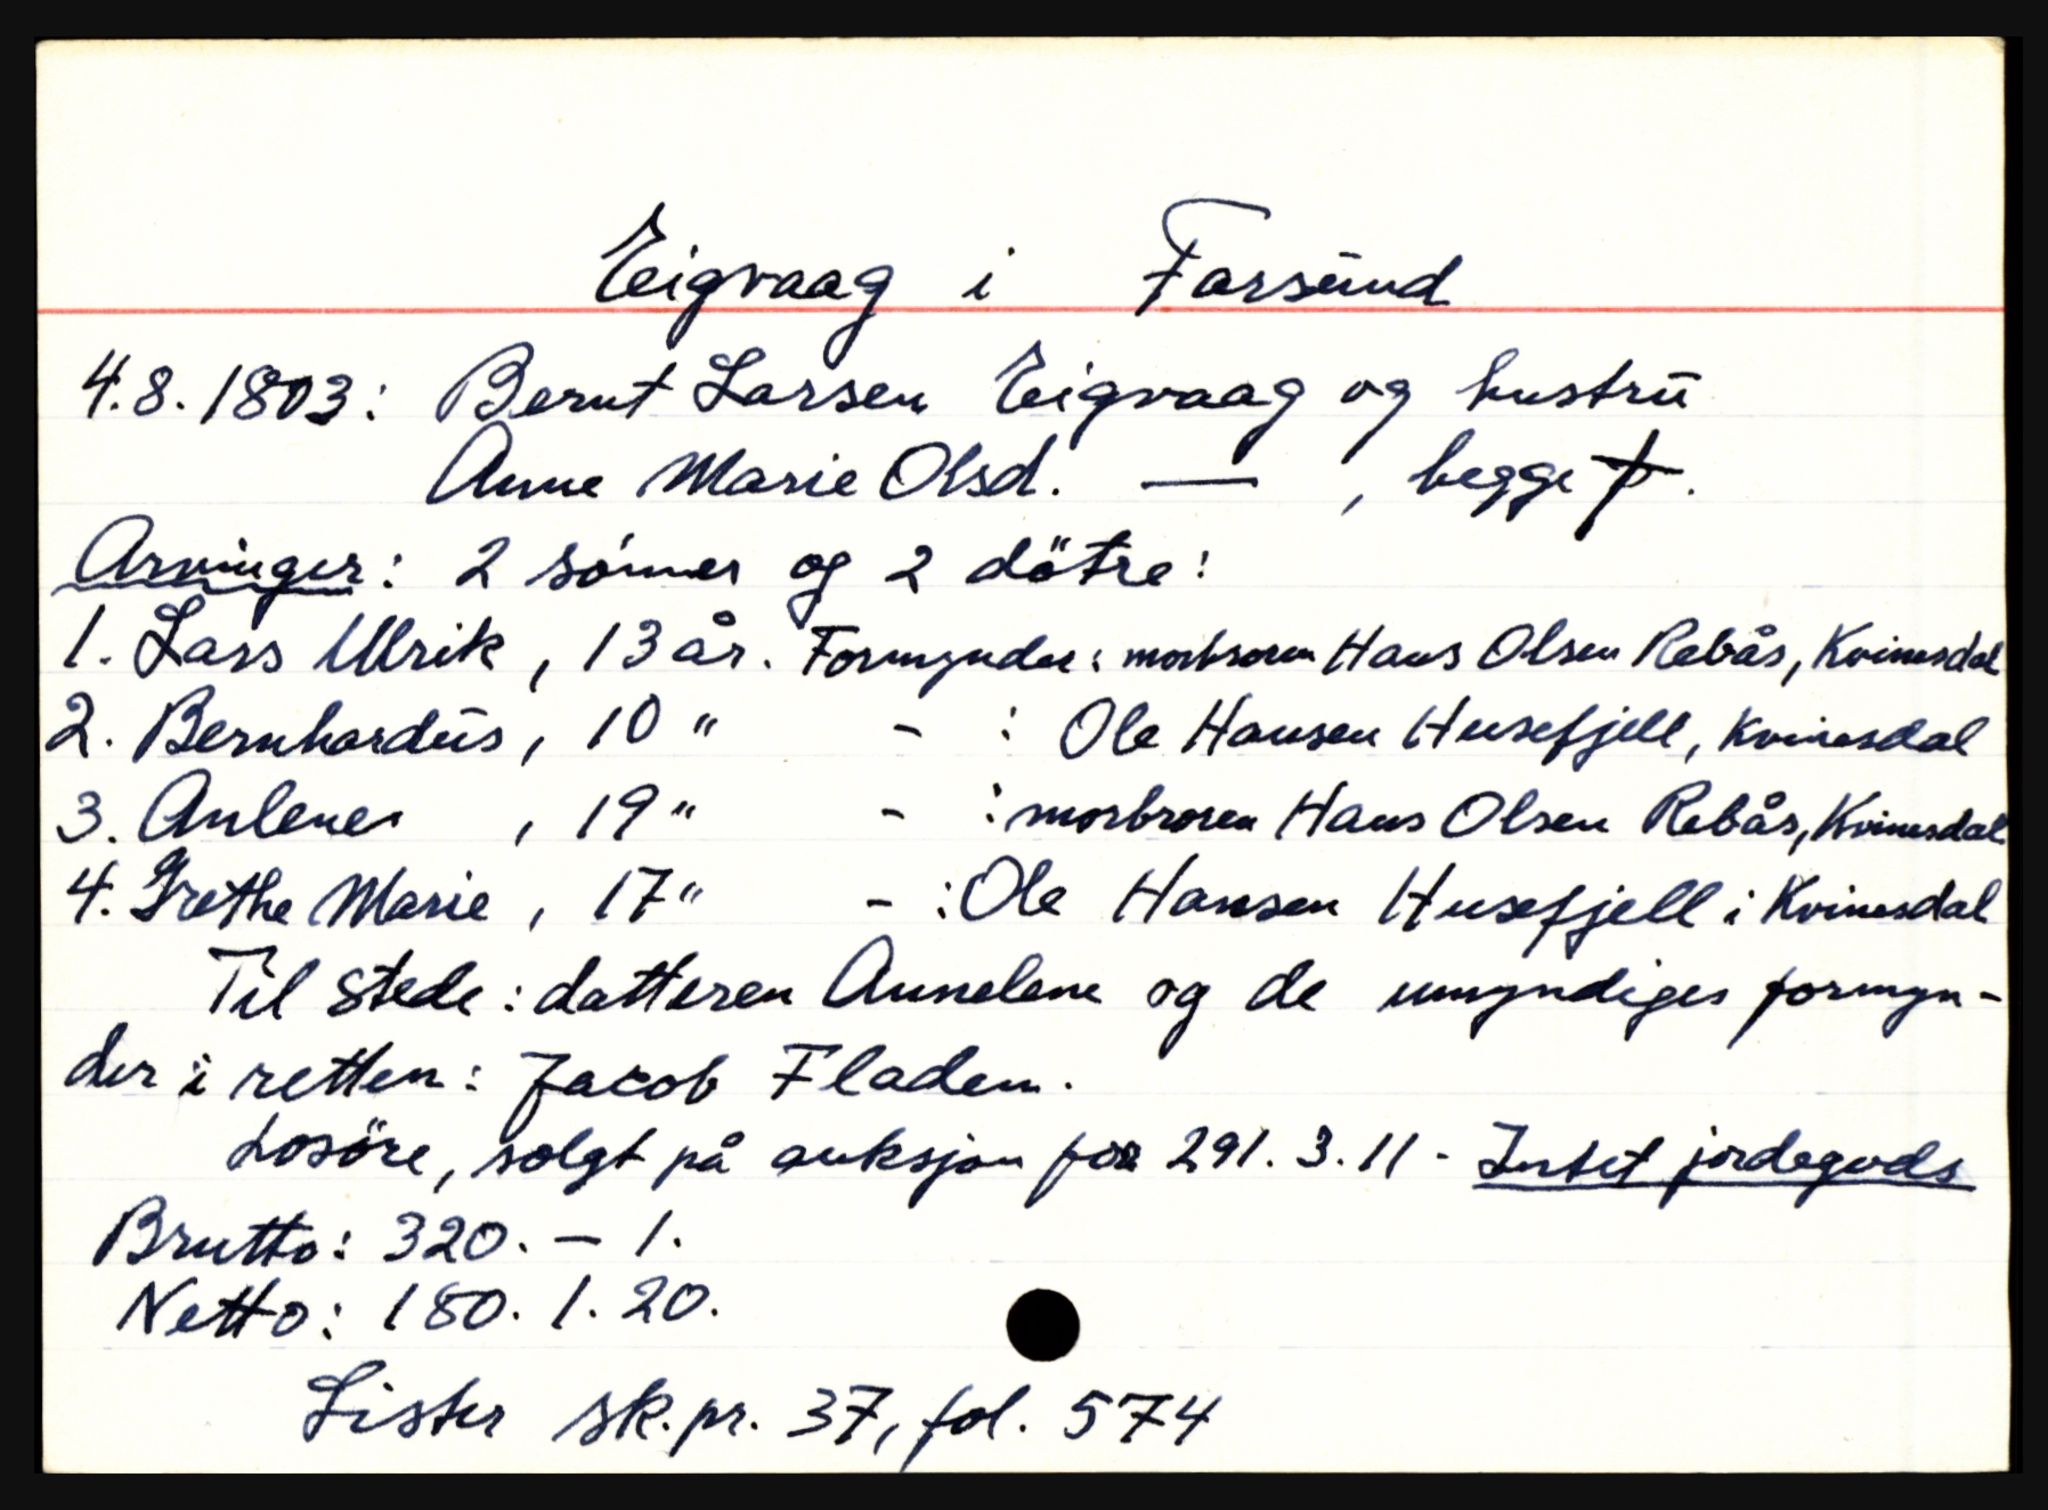 Eigvaag i Farsund
4.8.1803: Bernt Larsen Eigvaag og hustru
Anne Marie Olsd. — , begge †.
Arvinger: 2 sønner og 2 døtre:
1. Lars Ulrik, 13 år. Formynder: morbroren Hans Olsen Rebås, Kvinesdal
2. Bernhardus, 10 " - : Ole Hansen Husefjell, Kvinesdal
3. Anlene , 19 " - : morbroren Hans Olsen Rebås, Kvinesdal
4. Grethe Marie, 17 " - : Ole Hansen Husefjell i Kvinesdal
Til stede: datteren Annelene og de umyndiges formyn-
der i retten: Jacob Fladem.
Losøre, solgt på auksjon for 291. 3. 11 - Intet jordegods
Brutto: 320. - 1.
Netto: 180. 1. 20.
Lister sk. pr. 37, fol. 574